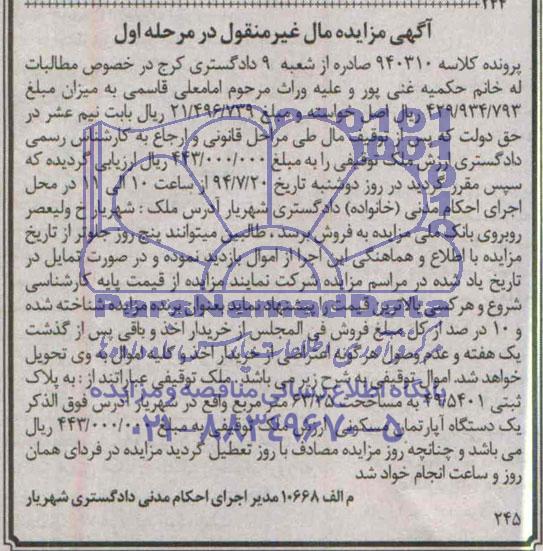 ۲۴۴
آگهی مزایده مال غیرمنقول در مرحله اول
پرونده کلاسه ۹۴۰۳۱۰ صادره از شعبه ۹ دادگستری کرج در خصوص مطالبات
له خانم حکمیه غنی پور و علیه وراث مرحوم امامعلی قاسمی به میزان مبلغ
۴۲۹/۹۳۴/۷۹۳ ریال اصل خواسته و مبلغ ۲۱/۴۹۶/۷۳۹ ریال بابت نیم عشر در
حق دولت که پس از توقیف مال طی مراحل قانونی و ارجاع به کارشناس رسمی
دادگستری ارزش ملک توقیفی را به مبلغ ۴۴۳/۰۰۰/۰۰۰ ریال ارزیابی گردیده که
سپس مقرر گردید در روز دوشنبه تاریخ ۹۴/۷/۲۰ از ساعت ۱۰ الی ۱۱ در محل
اجرای احکام مدنی (خانواده) دادگستری شهریار آدرس ملک : شهریار خ ولیعصر
روبروی بانک ملی مزایده به فروش برسد ، طالبین میتوانند پنج روز جلوتر از تاریخ
مزایده با اطلاع و هماهنگی این اجرا از اموال بازدید نموده و در صورت تمایل در
تاریخ یاد شده در مراسم مزایده شرکت نمایند مزایده از قیمت پایه کارشناسی
شروع و هر کسی بالاترین قیمت را پیشنهاد نماید بعنوان برنده مزایده شناخته شده
و ۱۰ در صد از کل مبلغ فروش فی المجلس از خریدار اخذ و باقی پس از گذشت
یک هفته و عدم وصول هرگونه اعتراضی از خریدار اخذ و کلیه اموال به وی تحویل
خواهد شد. اموال توقیفی به شرح زیر می باشد. ملک توقیفی عبارتند از : به پلاک
ثبتی ۴۹/۵۴۰۱ به مساحت ۶۳/۲۵ متر مربع واقع در شهریار آدرس فوق الذکر
یک دستگاه آپارتمان مسکونی ارزش ملک توقیفی به مبلغ ۴۴۳/۰۰۰/۰۰۰ ریال
می باشد و چنانچه روز مزایده مصادف با روز تعطیل گردید مزایده در فردای همان
روز و ساعت انجام خواد شد
م الف ۱۰۶۶۸ مدیر اجرای احکام مدنی دادگستری شهریار
۲۴۵
ParsNamadData
پایگاه اطلاع رسانی مناقصه و مزایده
۰۲۱-۸۸۳۴۹۶۷۰-۵